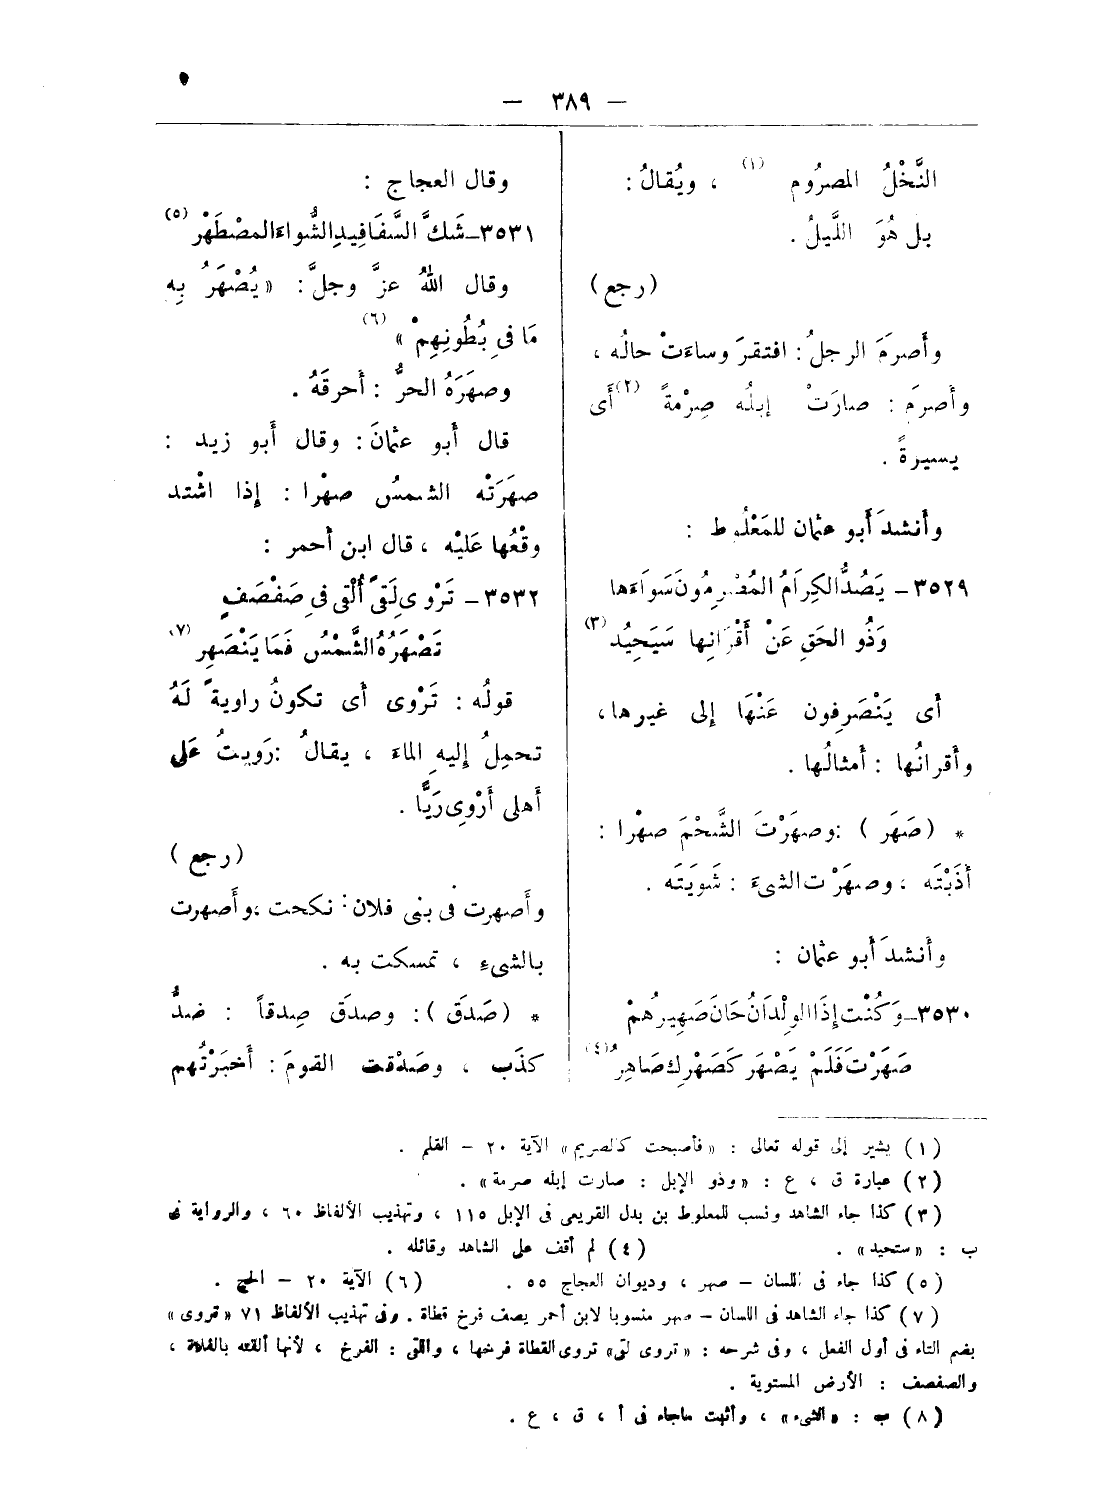 — ٣٨٩ —
النَّخْلُ المصرُوم (١) ، ويُقالُ :
بل هُوَ اللَّيلُ .
(رجع)
وأَصرمَ الرجلُ : افتقرَ وساءَتْ حالُه ،
وأَصرمَ : صارَتْ إبلُه صِرْمةً (٢) أَى
يسيرةً .
وأَنشدَ أَبو عثمان للمَعْلُوط :
٣٥٢٩ – يَصُدُّ الكِرَامُ المُصْرِمُونَ سَوَاءَها
وَذُو الحَقِ عَنْ أَقْرَانِها سَيَحِيْدُ (٣)
أَى يَنْصَرِفون عَنْهَا إلى غيرها ،
وأَقرانُها : أَمثالُها .
* (صَهَر) : وصهَرْتَ الشَّحْمَ صهْرا :
أَذَبْتَه ، وصهَرْت الشىءَ : شَويَتَه .
وأَنشدَ أَبو عثمان :
٣٥٣٠ – وَكُنْت إِذَا الوِلْدَانُ حَانَ صَهِيرُهُمْ
صَهَرْتَ فَلَمْ يَصْهَر كَصَهْرِكَ صَاهِرُ (٤)
وقال العجاج :
٣٥٣١ – شَكَّ السَّفَافِيدِ الشُّواءَ المصْطَهْرْ (٥)
وقال اللهُ عزَّ وجلَّ : « يُصْهَرُ بِه
مَا فى بُطُونِهِمْ » (٦)
وصهَرَهُ الحرُّ : أَحرقَهُ .
قال أَبو عثمانَ : وقال أَبو زيد :
صهَرَتْه الشمسُ صهْرا : إذا اشْتد
وقْعُها عَليْه ، قال ابن أَحمر :
٣٥٣٢ – تَرْوِى لَقىً أُلْقِى فى صَفْصَفٍ
تَصْهَرُهُ الشَّمْسُ فَمَا يَنْصَهِر (٧)
قولُه : تَرْوى أى تكونُ راويةً لَهُ
تحمِلُ إليهِ الماءَ ، يقالُ : رَويتُ عَلى
أَهلى أَرْوِى رَيًّا .
(رجع)
وأَصهرت فى بنى فلان : نكحت ، وأَصهرت
بالشىءِ ، تمسكت به .
* (صَدَق) : وصدَق صِدقاً : ضدُّ
كذَب ، وصَدْقت القومَ : أَخبَرْتُهم
(١) يشير إلى قوله تعالى : «فأصبحت كالصريم» الآية ٢٠ – القلم .
(٢) عبارة ق ، ع : «وذو الإبل : صارت إبله صرمة» .
(٣) كذا جاء الشاهد ونسب للمعلوط بن بدل القريعى فى الإبل ١١٥ ، وتهذيب الألفاظ ٦٠ ، والرواية فى
ب : «ستحيد» . (٤) لم أقف على الشاهد وقائله .
(٥) كذا جاء فى اللسان – صهر ، وديوان العجاج ٥٥ . (٦) الآية ٢٠ – الحج .
(٧) كذا جاء الشاهد فى اللسان – صهر منسوبا لابن أحمر يصف فرخ قطاة . وفى تهذيب الألفاظ ٧١ «تروى»
بضم التاء فى أول الفعل ، وفى شرحه : «تروى لقى» تروى القطاة فرخها ، واللقى : الفرخ ، لأنها ألقته بالفلاة ،
والصفصف : الأرض المستوية .
(٨) ب : «الشىء» ، وأثبت ماجاء فى أ ، ق ، ع .